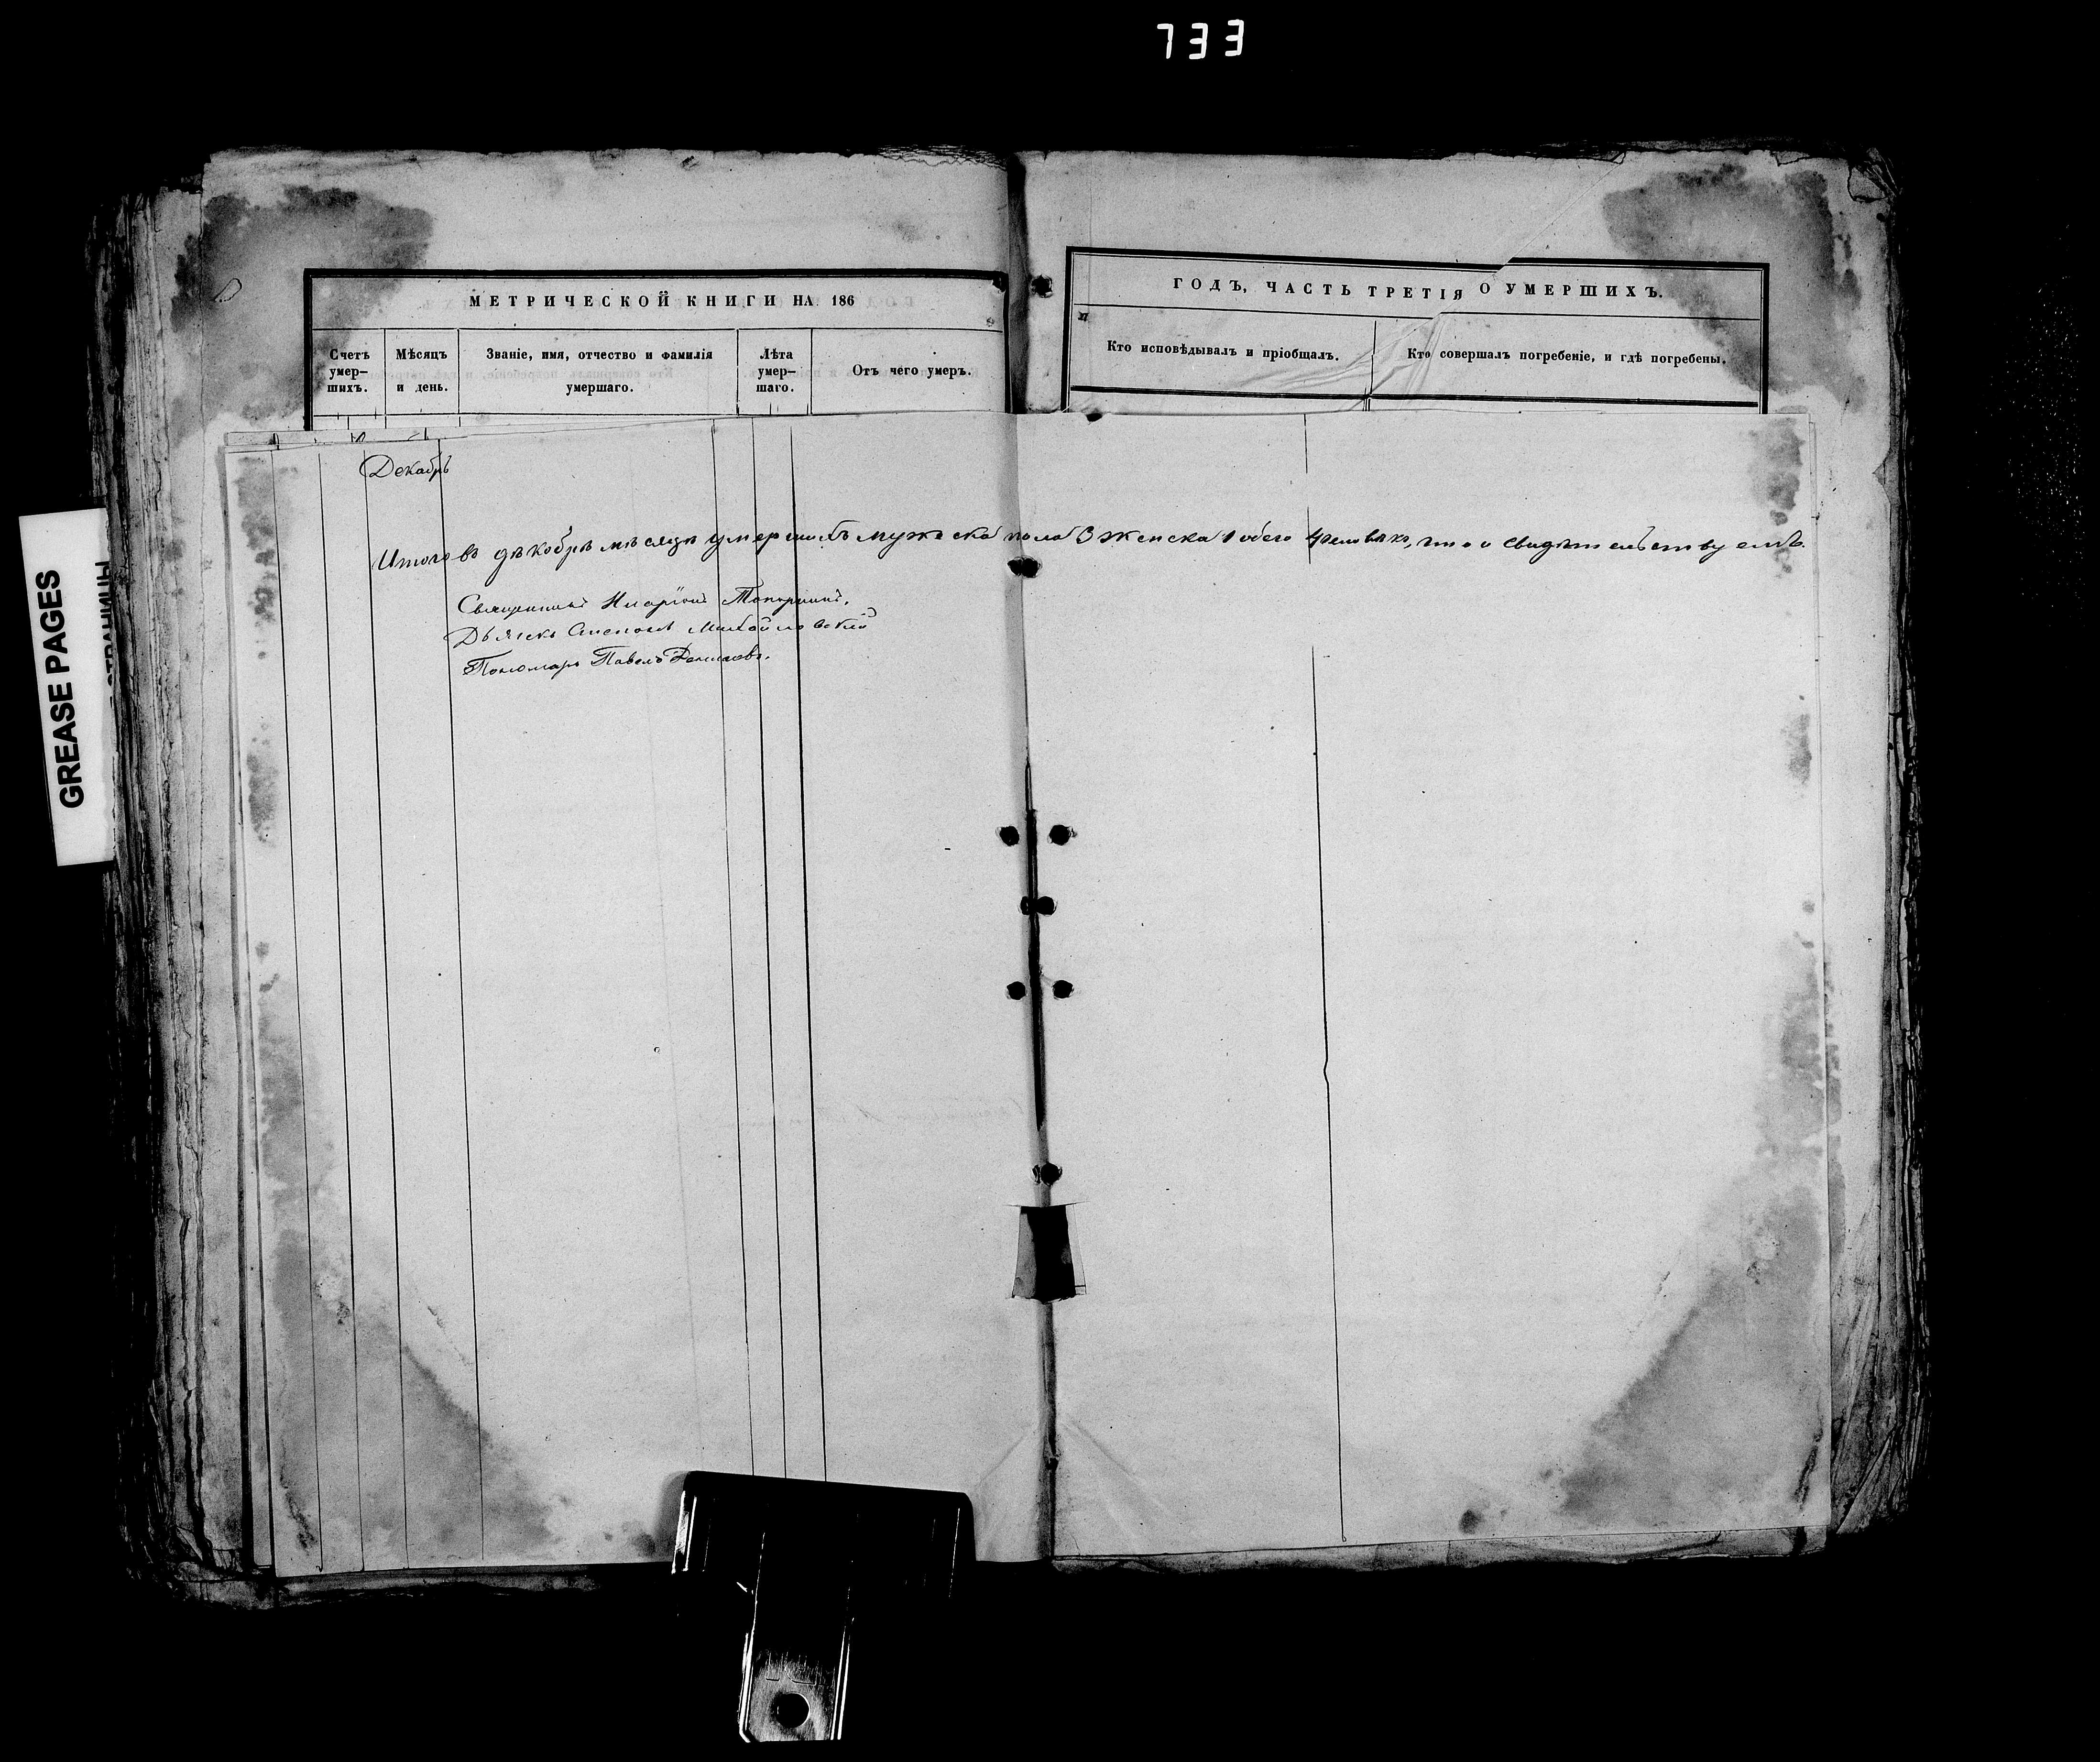 733
МЕТРИЧЕСКОЙ КНИГИ НА 186
ГОДЪ, ЧАСТЬ ТРЕТІЯ О УМЕРШИХЪ.
Счетъ умер–шихъ.
Мѣсяцъ и день.
Званіе, имя, отчество и фамилія умершаго.
Лѣта умер–шаго.
Отъ чего умеръ.
Кто исповѣдывалъ и пріобщалъ.
Кто совершалъ погребеніе, и гдѣ погребены.
Декабрь
Итого въ декабрѣ мѣсяцѣ умершихъ мужеска пола 3 женска 1 обего 4 человѣка, что и свидѣтельствуемъ.
Священникъ Иларіонъ
Дьячекъ Михайловскій
Пономарь Павелъ
GREASE PAGES
СТРАНИЦЫ